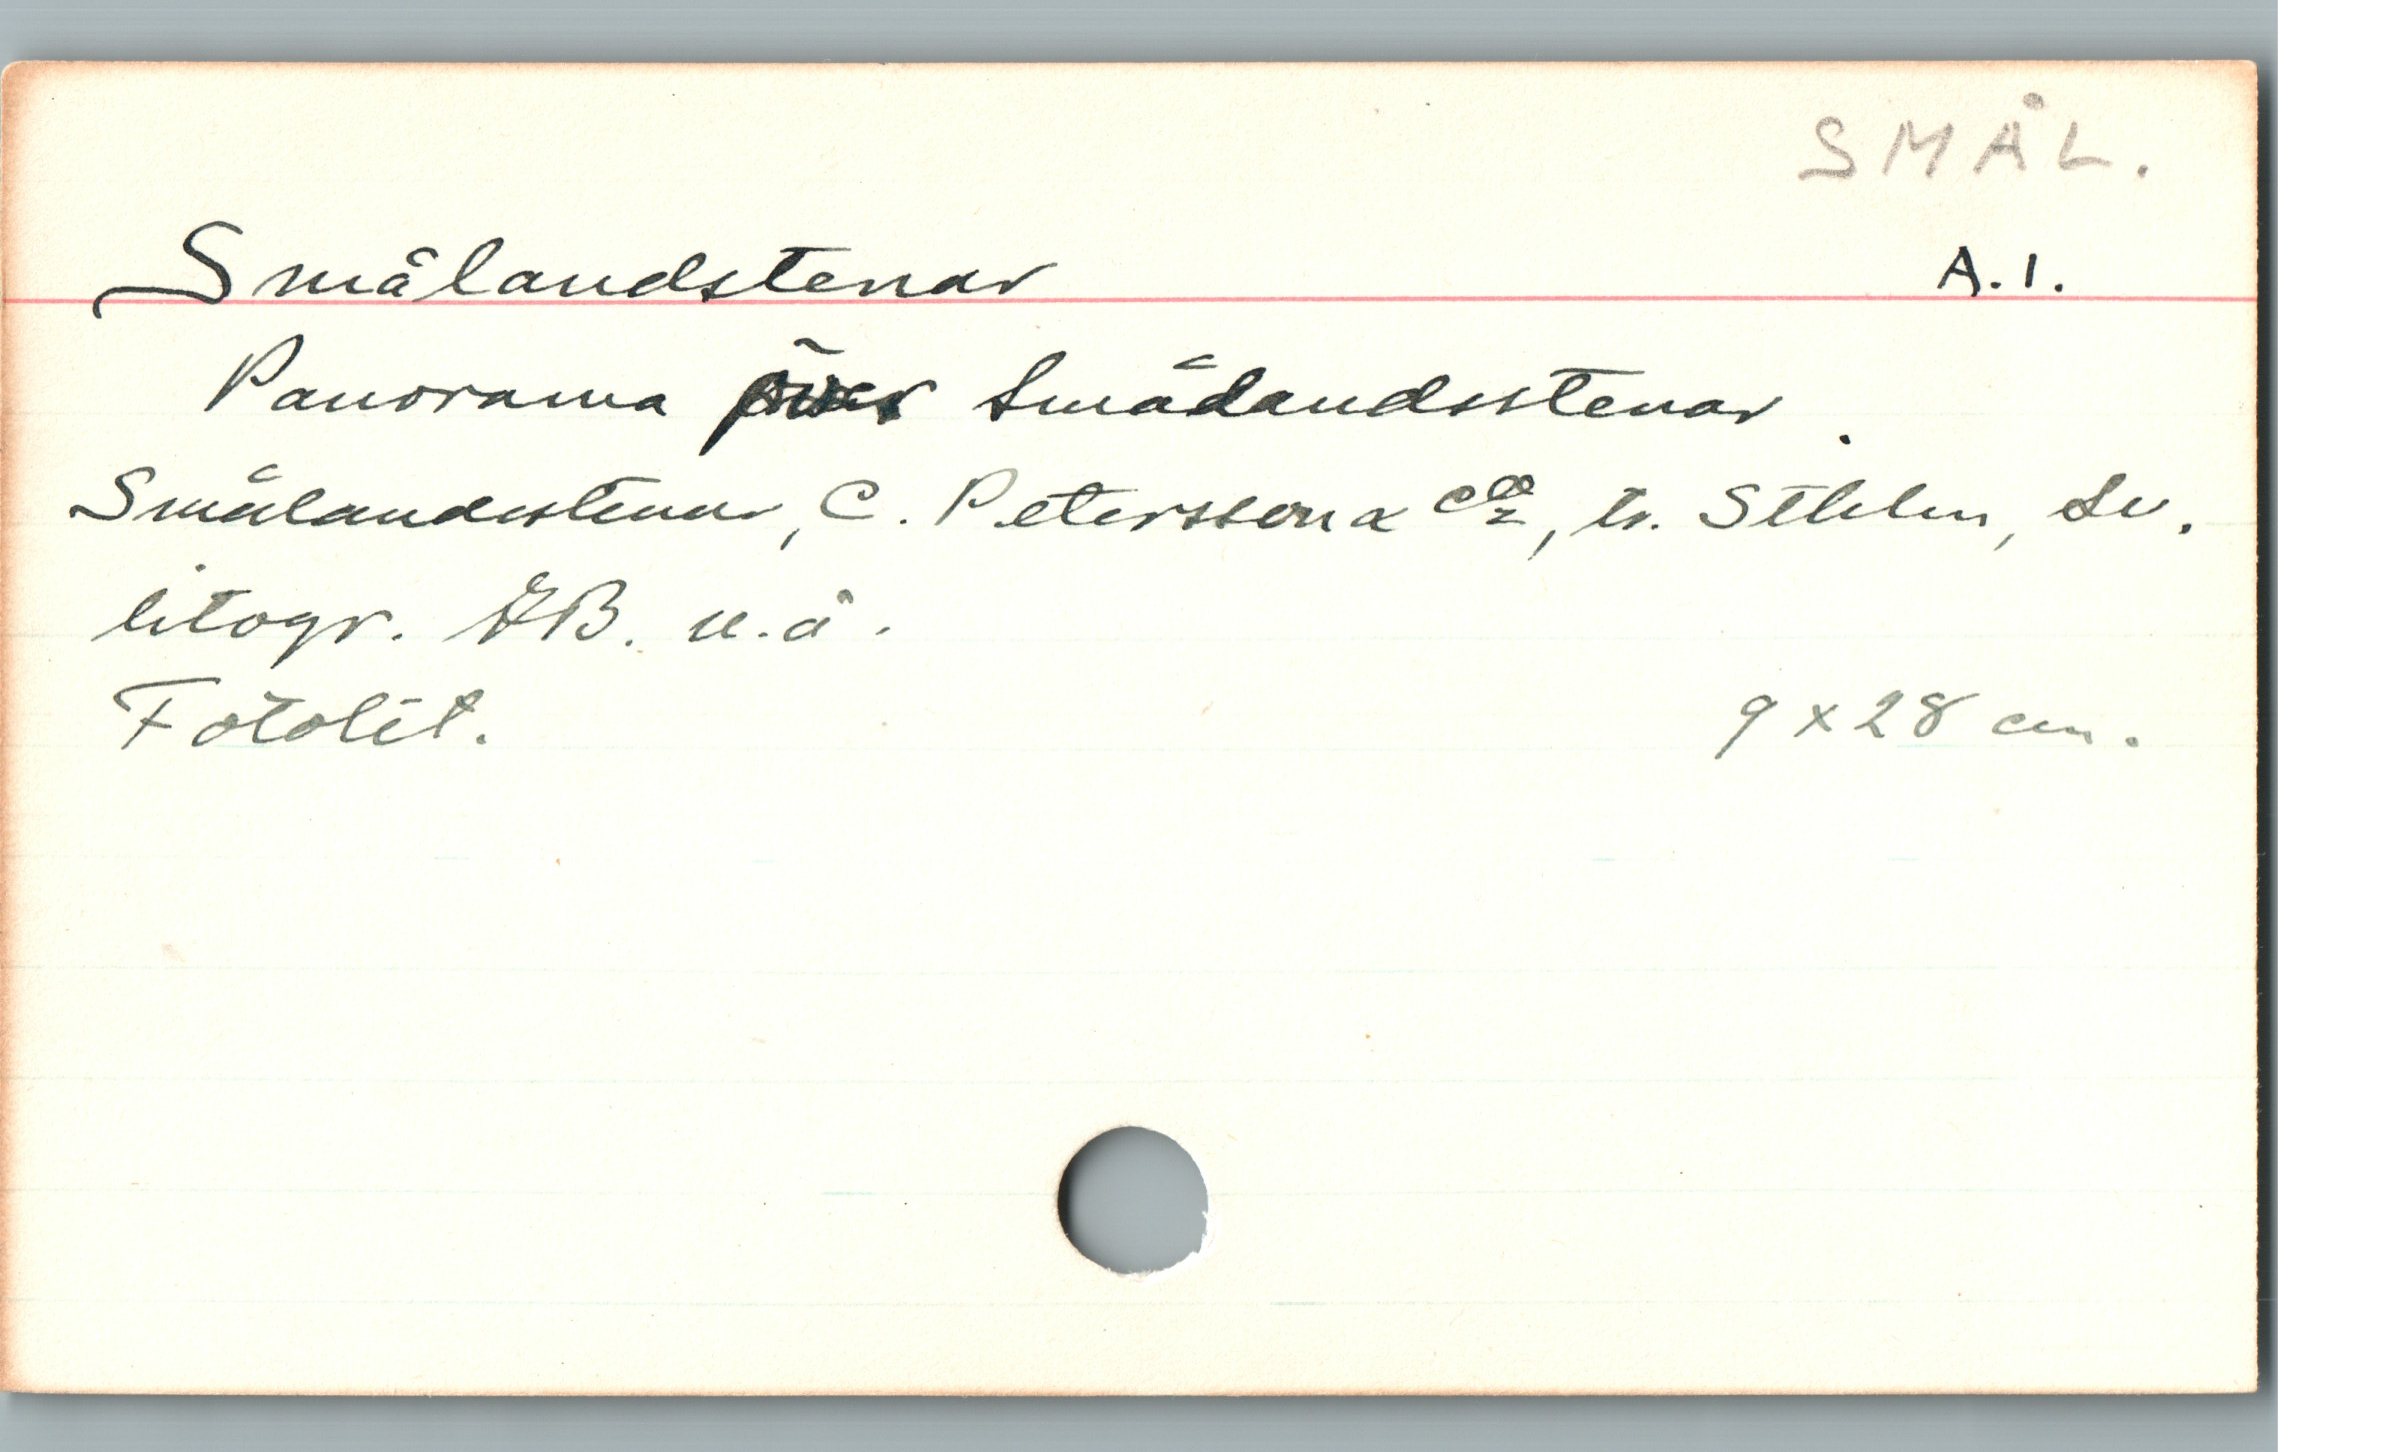 SMÅL.
Smålandstenar A.1.
Panorama över Smålandsstenar.
Smålandsstenar, C. Petersson & Co, tr. Sthlm, Sv.
litogr. AB. u.å.
Fotolit. 9 x 28 cm.